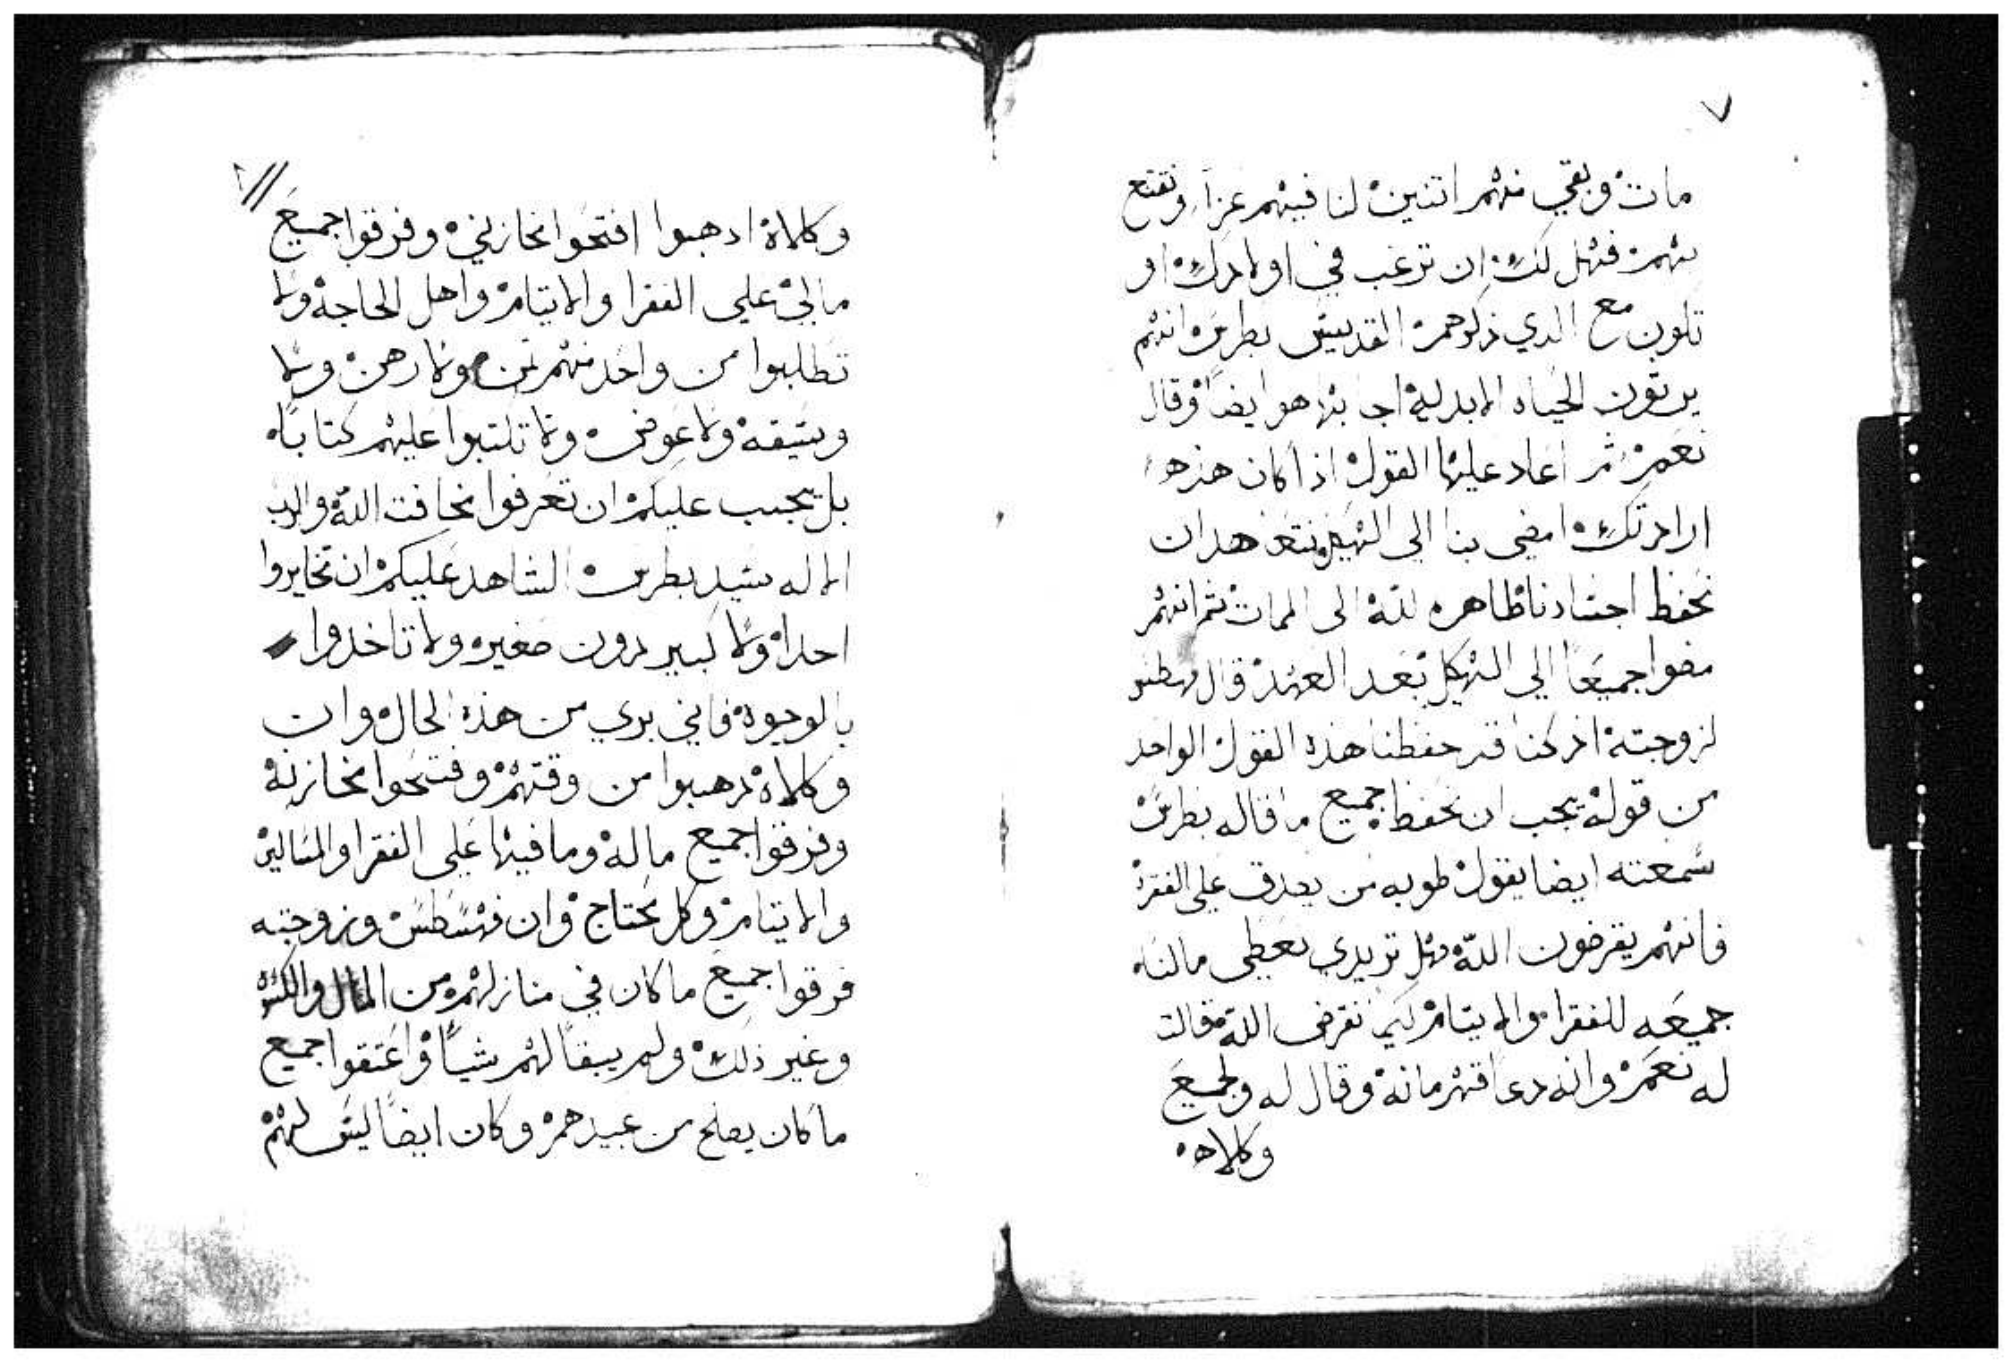 ٧
مات وبقي منهم اتنين لنا فيهم عزاً ونقنع
بهم فهل لك ان ترغب في اولادك او
تكون مع الدي ذكرهم القديس بطرس انهم
يرتون الحياه الابدليه اجابتها هو ايضاً وقال
نعم ثم اعاد عليها القول اذا كان هذه
ارادتك امضي بنا الي الهيكل نتعهد ان
نحفط اجسادنا ظاهره لله الى الممات ثم انهم
مضوا جميعاً الي الهيكل بعد العهد قال
لزوجته اد كنا قد حفطنا هذه القول الواحد
من قوله يجب ان نحفظ جميع ما قاله بطرس
سمعته ايضا يقول طوبه من يصدق علي الفقرا
فانهم يقرضون الله فهل تريدي نعطي مالنا
جميعه للفقرا والايتام لكيما نقرض الله قالت
له نعم وانه دعا قهرمانه وقال له ولجميع
وكلاه
وكلاه ادهبوا افتحوا مخازني وفرقوا جميع
مالي علي الفقرا والايتام واهل الحاجه ولا
تطلبوا من واحد منهم تمن ولا رهن ولا
وسيقه ولا عوض ولا تكتبوا عليهم كتاباً
بل يجب عليكم ان تعرفوا مخافت الله والرب
الاله سيد بطرس الشاهد عليكم ان تحايروا
احداً ولا كبير دون صغير ولا تاخدوا
بالوجوه فاني بري من هذه الحال وان
وكلاه دهبوا من وقتهم وفتحوا مخازنه
وفرقوا جميع ماله وما فيها على الفقرا والمساكين
والايتام وكل محتاج وان فهسطس وزوجته
فرقوا جميع ما كان في منازلهم من المال والكسوه
وغير ذلك ولم يبقاً لهم شيئاً واعتقوا جميع
ما كان يصلح من عبيدهم وكان ايضاً ليس لهم